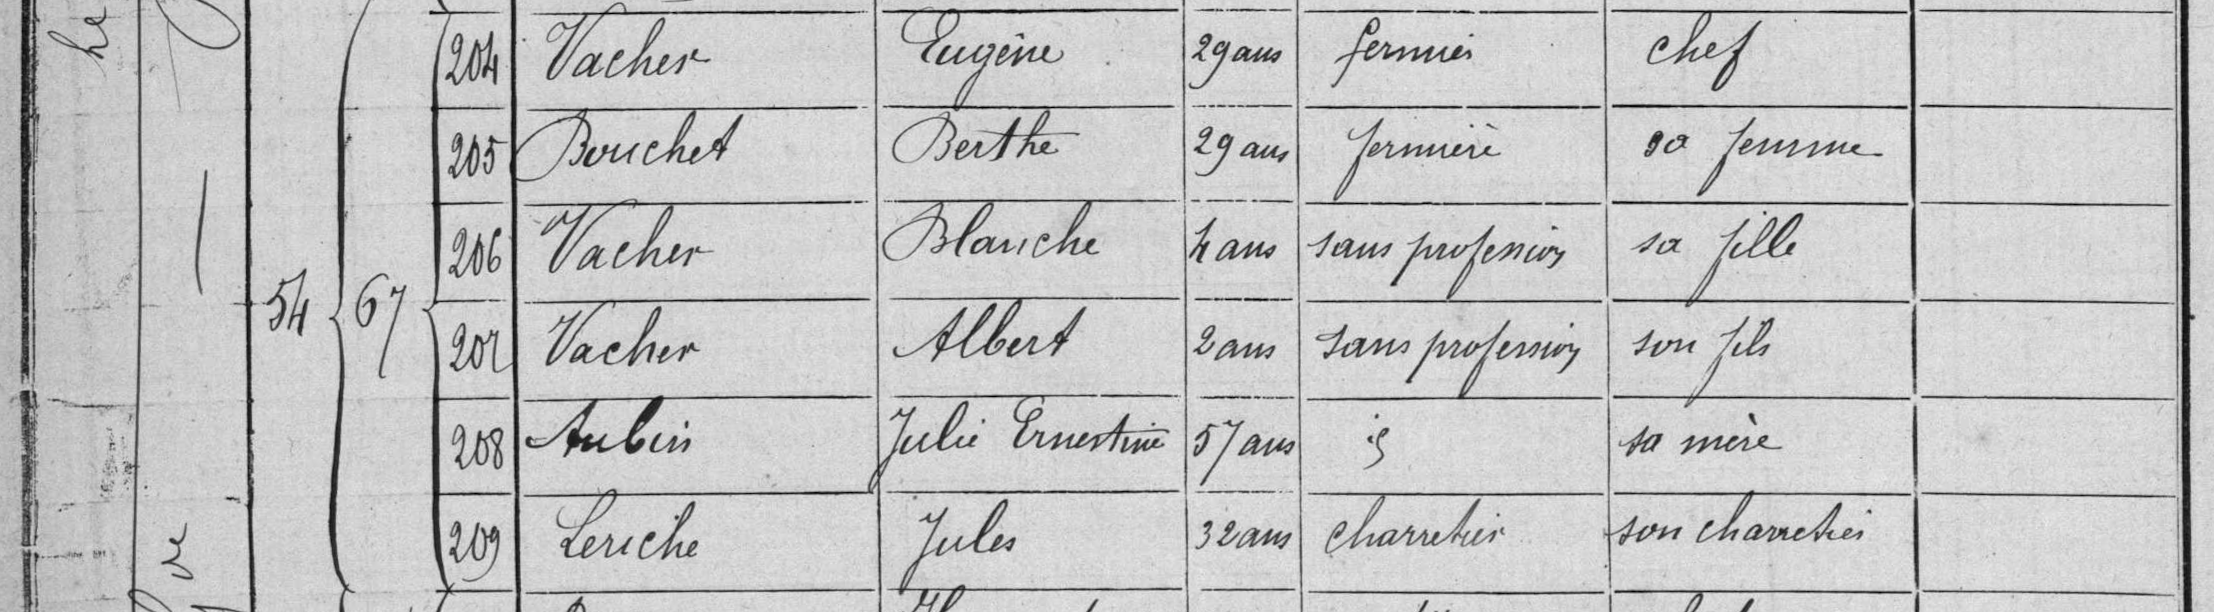 204 Vacher Eugène 29 ans fermier chef
205 Bouchet Berthe 29 ans fermière sa femme
206 Vacher Blanche 4 ans sans profession sa fille
54 67 207 Vacher Albert 2 ans sans profession son fils
208 Aubin Julie Ernestine 57 ans sa mère
209 Leriche Jules 32 ans charretier son charretier